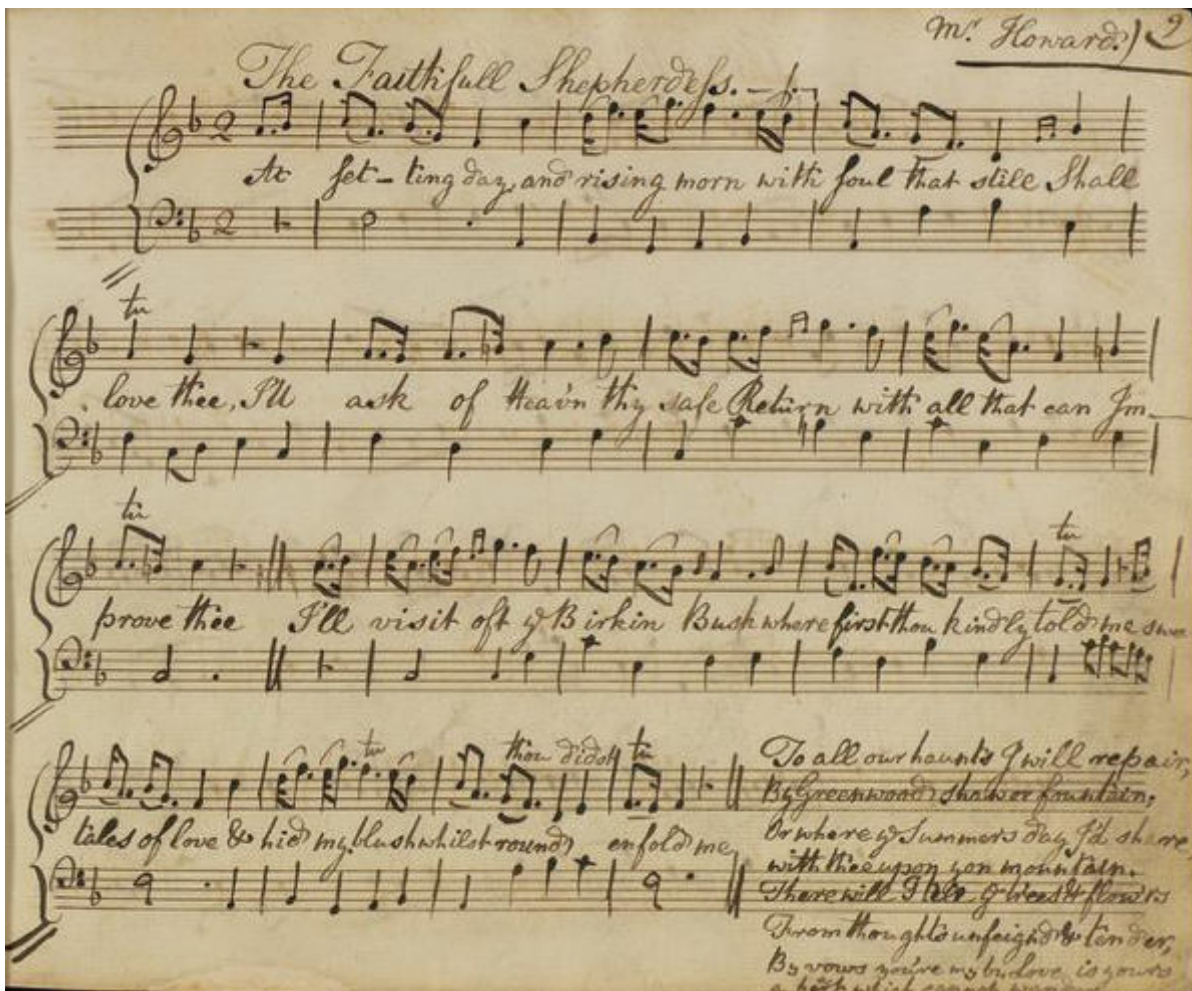 Mr. Howard.) 9
The Faithfull Shepherdess.
At set-ting day, and rising morn with soul that still Shall
tr
love thee, I'll ask of Heav'n thy safe Return with all that can Im-
tr
tr
prove thee I'll visit oft ye Birkin Bush where first thou kindly told me
tr thou didst tr
tales of love & hid my blush whilst round enfold me
To all our haunts I will repair,
By Greenwood shaw or fountain;
Or where ye Summers day I'd share
with thee upon yon mountain.
There will I tell ye trees & flow'rs
From thoughts unfeign'd & tender,
By vows you're my by love is yours
a heart which cannot